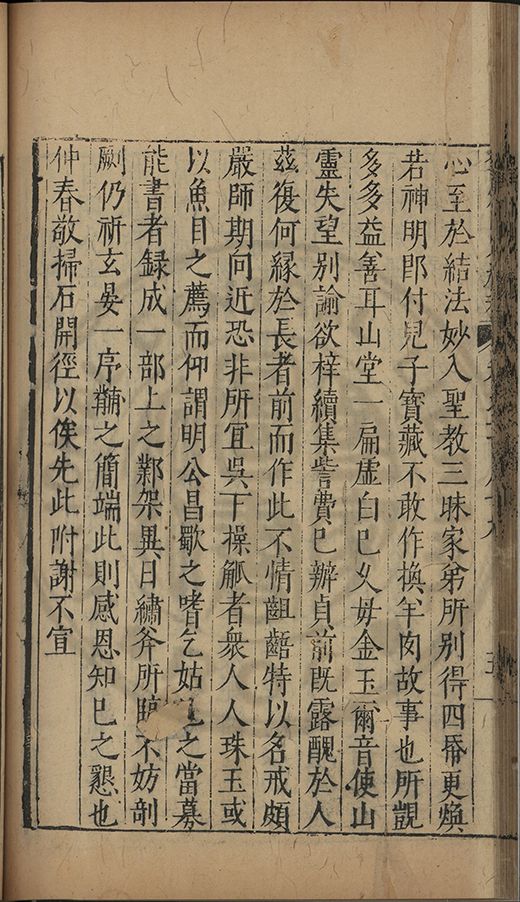 心至於結法妙入聖教三昧家弟所別得四番更煥
若神明即付兒子寳藏不敢作換羊肉故事也所覬
多多益善耳山堂一扁虚白已乆毋金玉爾音使山
靈失望别諭欲梓續集訾費已辦貞前既露醜於人
兹復何縁於長者前而作此不情齟齬特以名戒頗
嚴師期向近恐非所宜吳下操觚者衆人人珠玉或
以魚目之薦而仰謂明公昌歜之嗜乞姑之當募
能書者録成一部上之鄴架異日繡斧所臨不妨剖
劂仍祈玄晏一序鞴之簡端此則感恩知已之懇也
仲春敬掃石開徑以俟先此附謝不宣